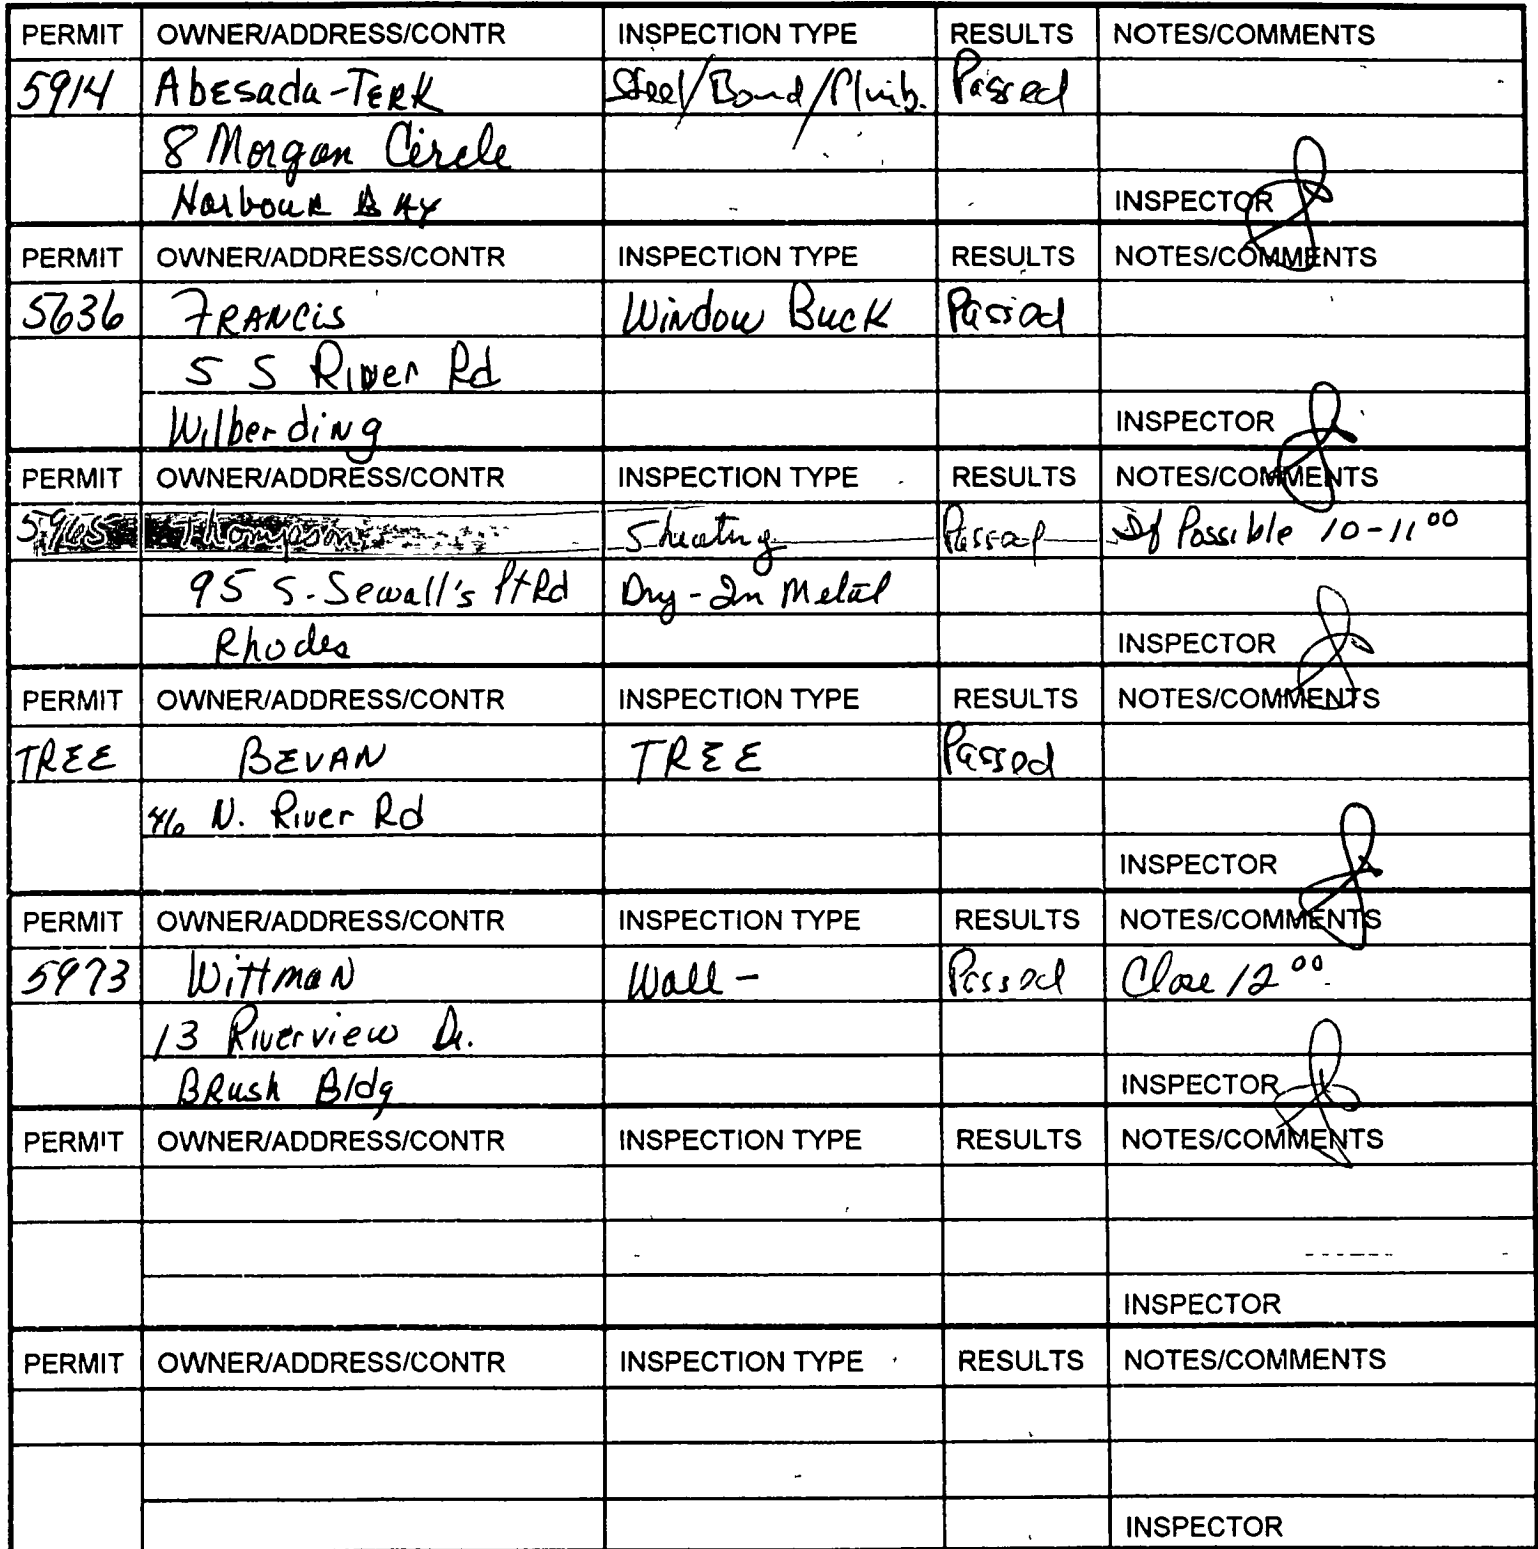 PERMIT OWNER/ADDRESS/CONTR INSPECTION TYPE RESULTS NOTES/COMMENTS
5914 Abesada-Terk Steel/Bond/Plumb. Passed
8 Morgan Circle
Harbour Bay INSPECTOR
PERMIT OWNER/ADDRESS/CONTR INSPECTION TYPE RESULTS NOTES/COMMENTS
5636 Francis Window Buck Passed
5 S River Rd
Wilberding INSPECTOR
PERMIT OWNER/ADDRESS/CONTR INSPECTION TYPE RESULTS NOTES/COMMENTS
5965 Thompson Sheating Passed If Possible 10-11 00
95 S. Sewall's Pt Rd Dry-In Metal
Rhodes INSPECTOR
PERMIT OWNER/ADDRESS/CONTR INSPECTION TYPE RESULTS NOTES/COMMENTS
TREE BEVAN TREE Passed
46 N. River Rd
INSPECTOR
PERMIT OWNER/ADDRESS/CONTR INSPECTION TYPE RESULTS NOTES/COMMENTS
5973 Wittman Wall - Passed Close 12 00
13 Riverview Dr.
Brush Bldg INSPECTOR
PERMIT OWNER/ADDRESS/CONTR INSPECTION TYPE RESULTS NOTES/COMMENTS
INSPECTOR
PERMIT OWNER/ADDRESS/CONTR INSPECTION TYPE RESULTS NOTES/COMMENTS
INSPECTOR